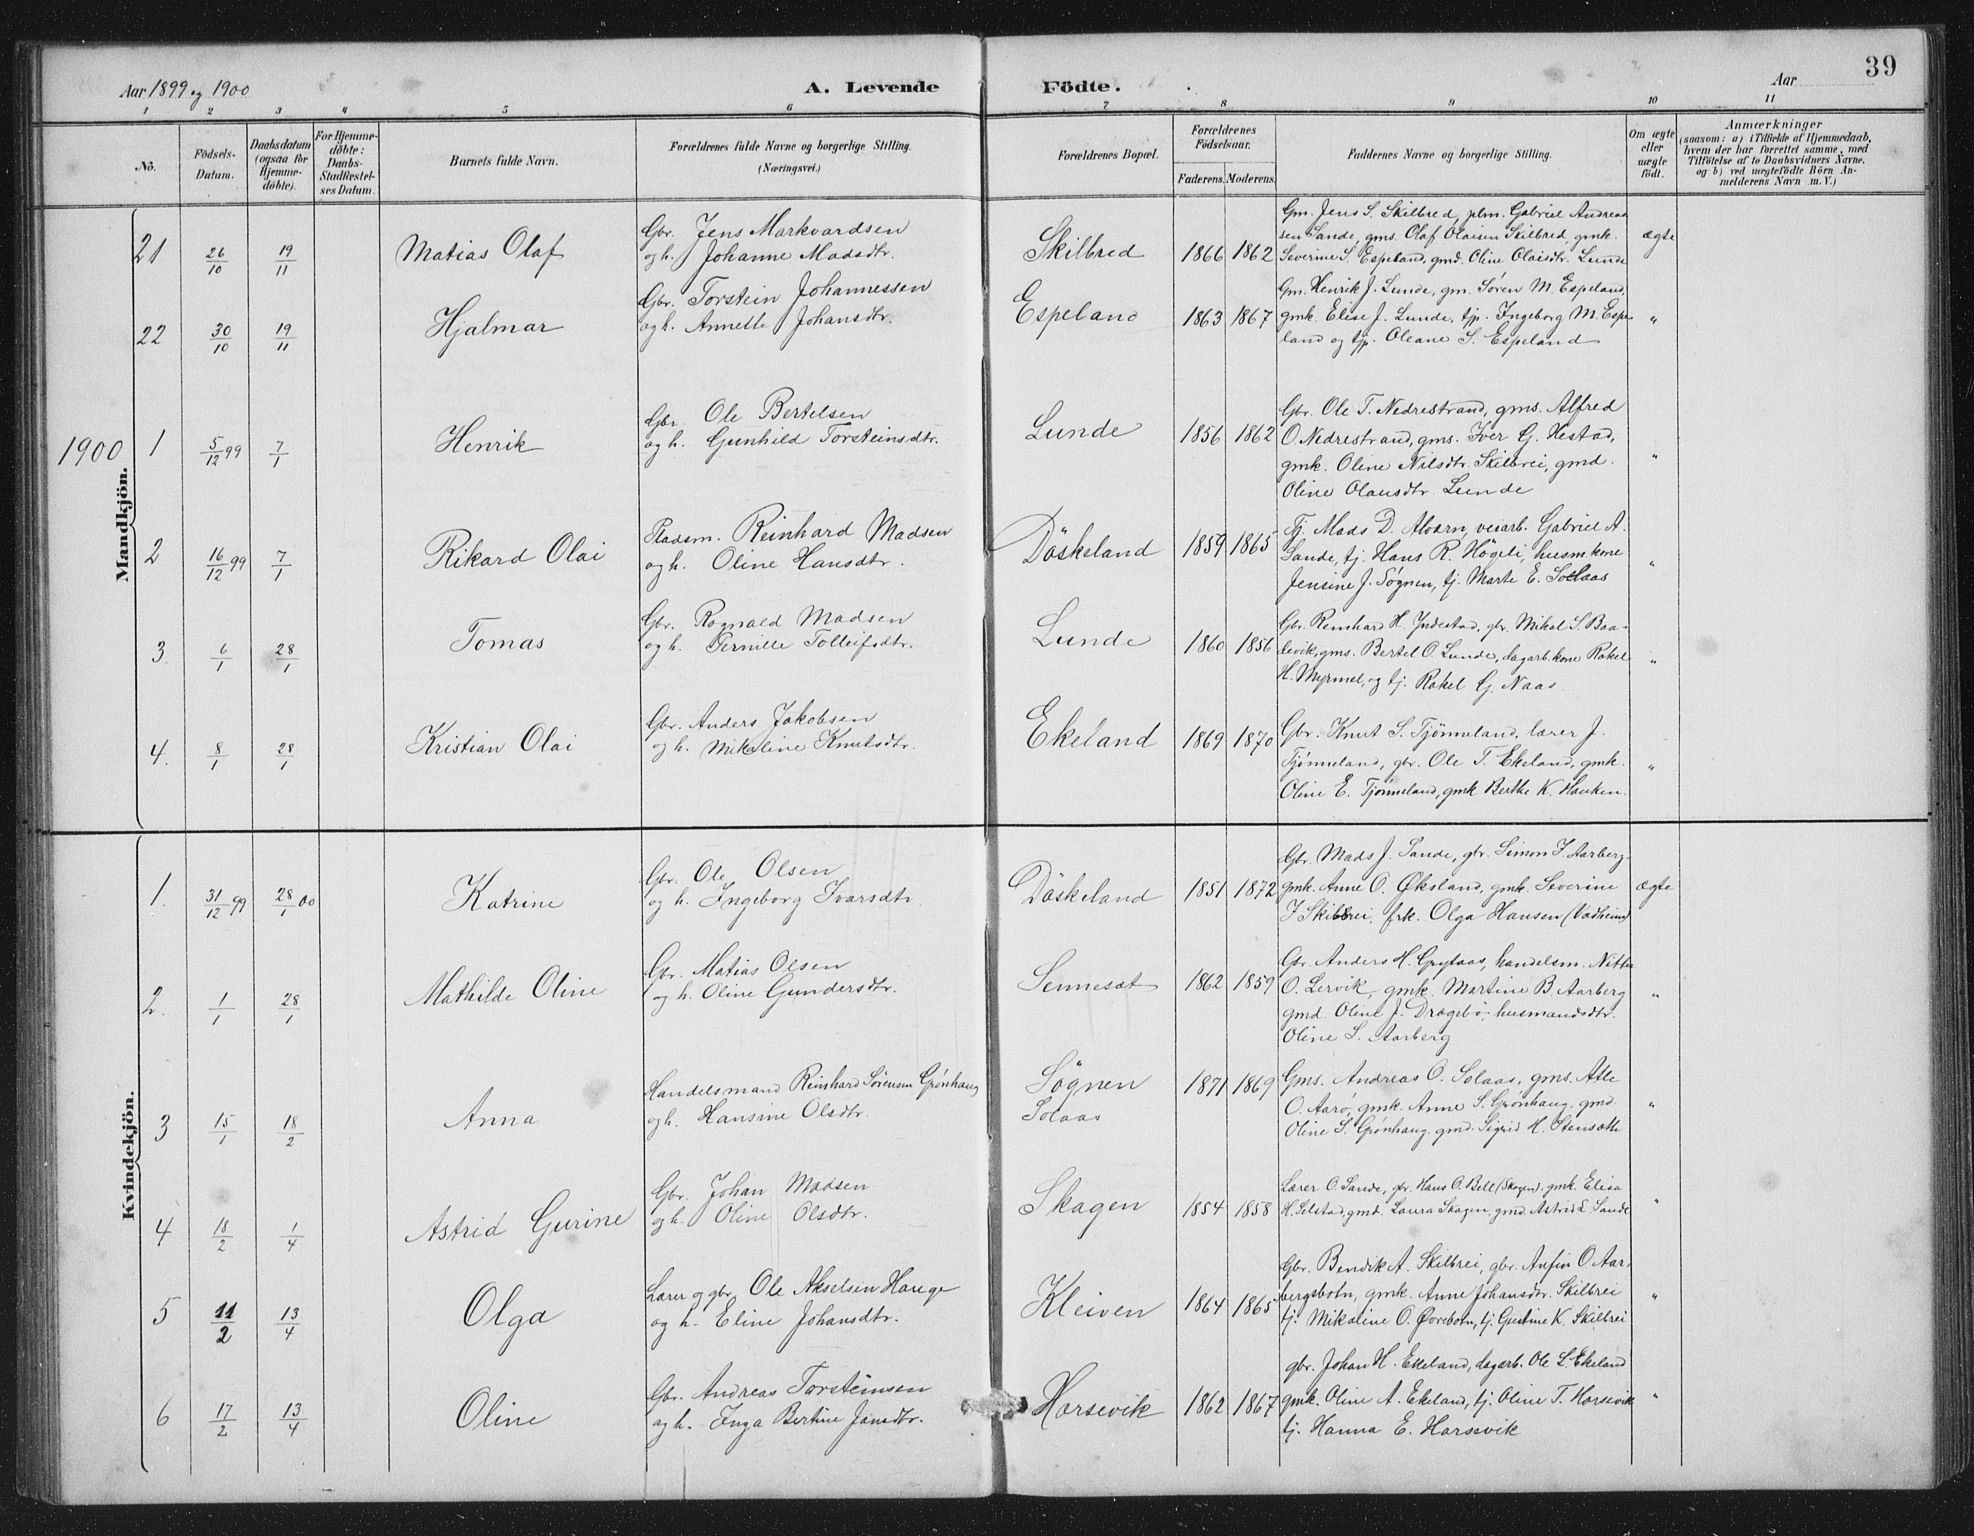 Aar 1899 og 1900
A. Levende Fødte.
Aar
39
1 2 3 4 5 6 7 8 9 10 11
No.
Födsels-
Datum.
Daabsdatum
(ogsaa for
Hjemme-
døbte).
For Hjemme-
døbte:
Daabs-
Stadfestel-
ses Datum.
Barnets fulde Navn.
Forældrenes fulde Navne og borgerlige Stilling.
(Næringsvei.)
Forældrenes Bopæl.
Forældrenes
Fødselsaar.
Faderens. Moderens.
Faddernes Navne og borgerlige Stilling.
Om ægte
eller
uægte
født.
Anmærkninger
(saasom: a) i Tilfælde af Hjemmedaab,
hvem der har forrettet samme, med
Tilføielse af to Daabsvidners Navne.
og b) ved uægtefødte Börn An-
melderens Navn m. V.)
Mandkjön.
21 26/10 19/11 Matias Olaf
Gbr. Jens Markvardsen
og h. Johanne Madsdtr.
Skilbred 1866 1862
Gm. Jens S. Skilbred, plm. Gabriel Andrea
sen Sande, gms. Olaf Olaisen Skilbred, gmk.
Severine S. Espeland, gmd. Oline Olaisdtr. Lunde
ægte
22 30/10 19/11 Hjalmar
Gbr. Torstein Johannessen
og h. Annette Johansdtr.
Espeland 1863 1867
Gm. Henrik J. Lunde, gm. Søren M. Espeland,
gmk. Elise J. Lunde, tjp. Ingeborg M. Espe
land og tjp. Oleane S. Espeland
"
1900 1 5/12 99 7/1 Henrik
Gbr. Ole Bertelsen
og h. Gunhild Torsteinsdtr.
Lunde 1856 1862
Gbr. Ole T. Nedrestrand, gms. Alfred
O Nedrestrand, gms. Iver G. Hestad,
gmk. Oline Nilsdtr. Skilbrei, gmd.
Oline Olausdtr. Lunde
"
2 16/12 99 7/1 Rikard Olai
Pladsm. Reinhard Madsen
og h. Oline Hansdtr.
Döskeland 1859 1865
Tj. Mads D. Alværn, veiarb. Gabriel A.
Sande, tj. Hans R. Høgeli, husmkone
Jensine J. Søgnen, tj. Marte E. Solaas
"
3. 6/1 28/1 Tomas
Gbr. Rognald Madsen
og h. Pernille Tolleifsdtr.
Lunde 1860 1856
Gbr. Reinhard H. Indrestad, gbr. Mikal S. Baa-
levik, gms. Bertel O. Lunde, dagarb.kone Rakel
H. Myrmel, og tj. Rakel G. Naas.
"
4. 8/1 28/1 Kristian Olai
Gbr. Anders Jakobsen
og h. Mikaline Knutsdtr.
Ekeland 1869 1870
Gbr. Knut S. Tjønneland, lærer J.
Tjønneland, gbr. Ole T. Ekeland, gmk.
Oline E. Tjønneland, gmk Berthe K. Hauken.
"
Kvindekjön.
1. 31/12 99 28/1 00 Katrine
Gbr. Ole Olsen
og h. Ingeborg Ivarsdtr.
Döskeland 1851 1872
Gbr. Mads J. Sande, gbr. Simon I. Aarberg.
gmk. Anne O. Øksland, gmk. Severine
I Skilbrei, frk. Olga Hansen (Vadheim)
ægte
2. 1/1 28/1 Mathilde Oline
Gbr. Matias Olsen
og h. Oline Gundersdtr.
Sennesæt 1862 1859
Gbr. Anders H. Grytaas, handelsm. Nitter
O. Lervik, gmk. Martine B. Aarberg
gmd. Oline J. Dragebø, husmandsdtr.
Oline S. Aarberg
"
3 15/1 18/2 Anna
Handelsmand Reinhard Sørensen Grønhaug
og h. Hansine Olsdtr.
Søgnen
Solaas
1871 1869
Gms. Andreas O. Solaas, gms. Atle
O. Aarø, gmk. Anne S. Grønhaug, gmd.
Oline S. Grønhaug, gmd. Sigrid H. Stensæth
"
4 18/2 1/4 Astrid Gurine
Gbr. Johan Madsen
og h. Oline Olsdtr.
Skagen 1854 1858
Lærer O. Sande, gbr. Hans O. Bell (Skagen), gmk. Elisa
H. Selstad, gmd. Laura Skagen, gmd. Astrid L Sande
"
5 11/2 13/4 Olga
Lærer og gbr. Ole Akselsen Hauge
og h. Eline Johansdtr.
Kleiven 1864 1865
Gbr. Bendik A. Skilbrei, gbr. Anfin O Aar-
bergsbotn, gmk. Anne Johansdtr. Skilbrei
tj. Mikaline O. Øvrebotn, tj. Gurine K. Skilbrei
"
6 17/2 13/4 Oline
Gbr. Andreas Torsteinsen
og h. Inga Bertine Jansdtr.
Horsevik 1862 1867
gbr. Johan H. Ekeland, dagarb. Ole L. Ekeland
gmk. Oline A. Ekeland, tj. Oline T. Horsevik
tj. Hanna E. Horsevik
"